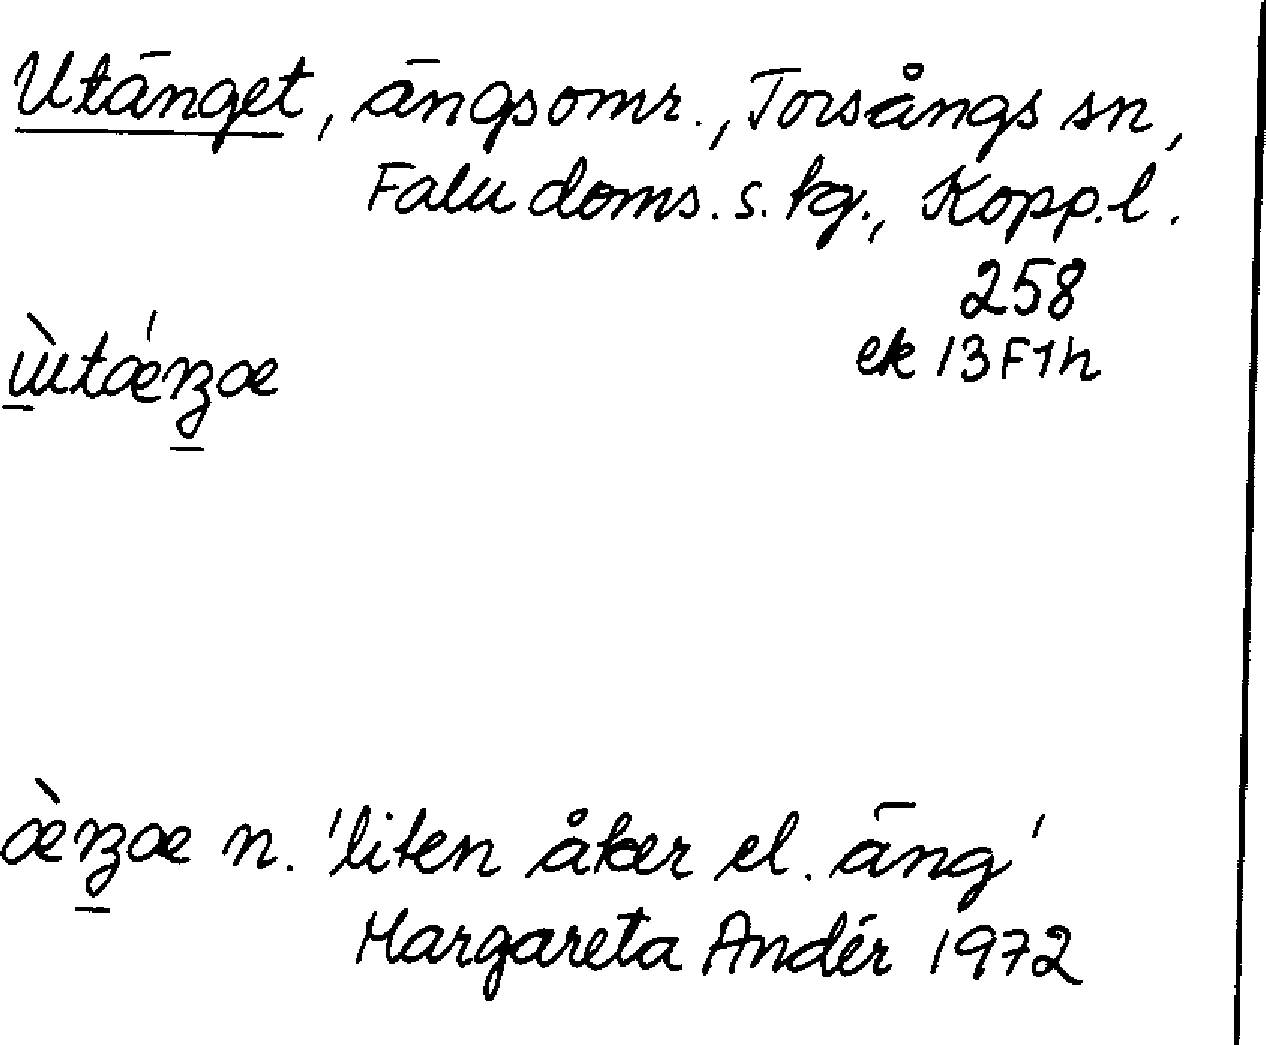 Utänget, ängsomr., Torsångs sn,
Falu doms. s. tg., Kopp.l.
258
ek 13F1h
ùtǽŋæ
æ̀ŋæ n. 'liten åker el. äng'
Margareta Andér 1972